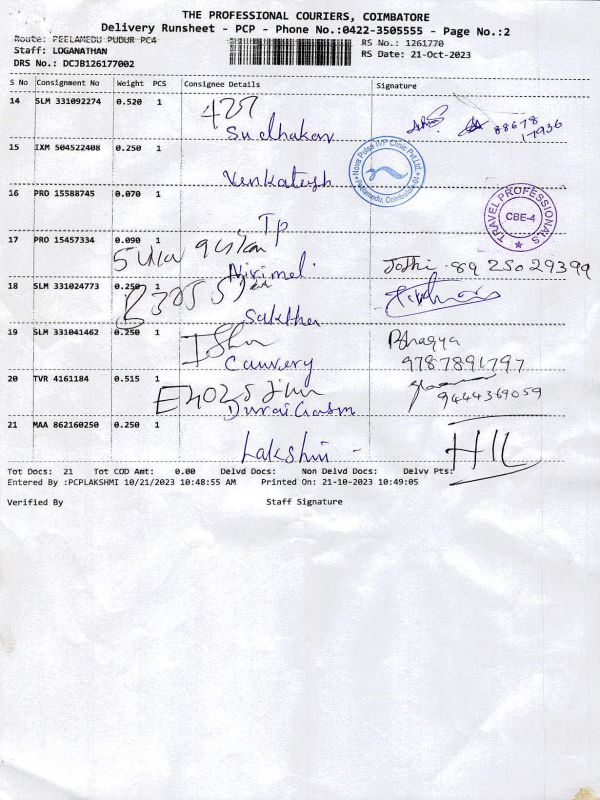 THE PROFESSIONAL COURIERS, COIMBATORE
Delivery Runsheet - PCP - Phone No.:0422-3505555 - Page No.:2
Route: PEELAMEDU PUDUR PC4
RS No.: 1261770
Staff: LOGANATHAN
RS Date: 21-Oct-2023
DRS No.: DCJB126177002
S No Consignment No Weight PCS Consignee Details Signature
14 SLM 331092274 0.520 1
Sudhakar
88678
17936
15 IXM 504522408 0.250 1
Nova Pulse IVP Clinic Pvt.Ltd.
Peelamedu, Coimbatore-04
Venkatesh
16 PRO 15588745 0.070 1
TRAVEL PROFESSIONALS
CBE-4
Tp
17 PRO 15457334 0.090 1
Nirmal
Jothi - 89 250 29399
18 SLM 331024773 0.250 1
Sakthi
19 SLM 331041462 0.250 1
Bhagya
Cauvery
9787891797
20 TVR 4161184 0.515 1
9444369059
21 MAA 862160250 0.250 1
Lakshmi -
Tot Docs: 21 Tot COD Amt: 0.00 Delvd Docs: Non Delvd Docs: Delvy Pts:
Entered By :PCPLAKSHMI 10/21/2023 10:48:55 AM Printed On: 21-10-2023 10:49:05
Verified By Staff Signature